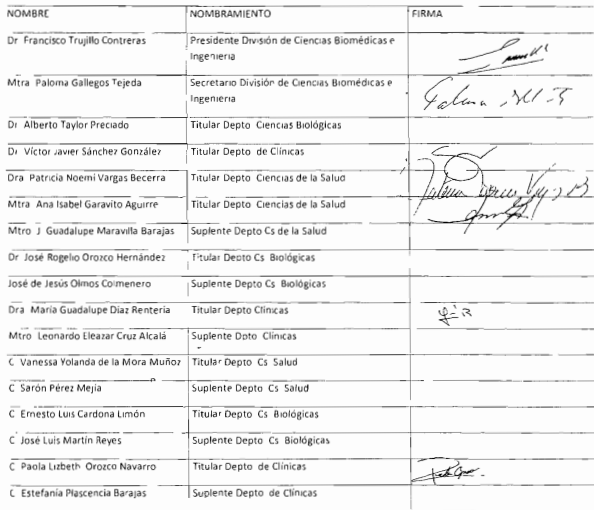 NOMBRE NOMBRAMIENTO FIRMA
Dr Francisco Trujillo Contreras Presidente División de Ciencias Biomédicas e
Ingenieria
Mtra Paloma Gallegos Tejeda Secretario División de Ciencias Biomédicas e
Ingenieria
Paloma
Dr Alberto Taylor Preciado Titular Depto Ciencias Biológicas
Dr Víctor Javier Sánchez González Titular Depto de Clínicas
Dra Patricia Noemí Vargas Becerra Titular Depto Ciencias de la Salud
Mtra Ana Isabel Garavito Aguirre Titular Depto Ciencias de la Salud
Mtro J Guadalupe Maravilla Barajas Suplente Depto Cs de la Salud
Dr José Rogelio Orozco Hernández Titular Depto Cs Biológicas
José de Jesús Olmos Colmenero Suplente Depto Cs Biológicas
Dra María Guadalupe Díaz Rentería Titular Depto Clínicas
Mtro Leonardo Eleazar Cruz Alcalá Suplente Dpto Clínicas
C Vanessa Yolanda de la Mora Muñoz Titular Depto Cs Salud
C Sarón Pérez Mejía Suplente Depto Cs Salud
C Ernesto Luis Cardona Limón Titular Depto Cs Biológicas
C José Luis Martín Reyes Suplente Depto Cs Biológicas
C Paola Lizbeth Orozco Navarro Titular Depto de Clínicas
C Estefanía Plascencia Barajas Suplente Depto de Clínicas